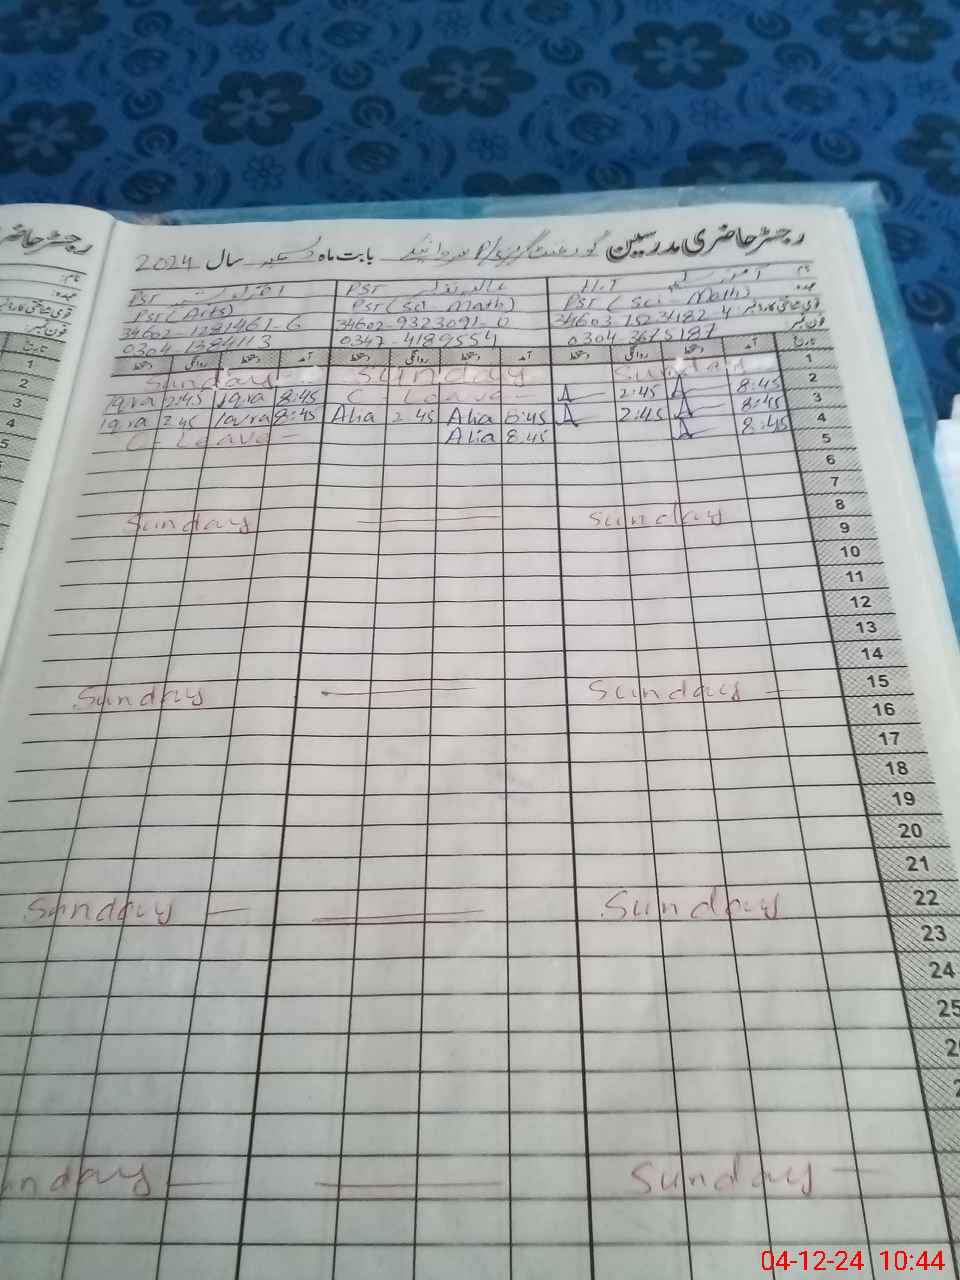 رجسٹر حاضری مدرسین گورنمنٹ بابت ماہ دسمبر سال 2024
رجسٹر حاضری
نام:
PST
PST
عہدہ:
PST (Sci-Math) PST (Sci Math) PST (Arts)
قومی شناختی کارڈ نمبر 34603-1523182-4 34602-9323091-0 34602-1281461-6
فون نمبر: 0304-3675187 0347-4189554 0304-1384113
تاریخ آمد دستخط روانگی دستخط آمد دستخط روانگی دستخط آمد دستخط روانگی دستخط
1 Sunday Sunday Sunday
2 8:45 A 2:45 A C-Leave 8:45 Iqra 2:45 Iqra
3 8:45 A 2:45 A 8:45 Alia 2:45 Alia 8:45 Iqra 2:45 Iqra
4 8:45 A 8:45 Alia C-Leave
5
6
7
8 Sunday Sunday
9
10
11
12
13
14
15 Sunday Sunday
16
17
18
19
20
21
22 Sunday Sunday
23
24
25
Sunday
04-12-24 10:44